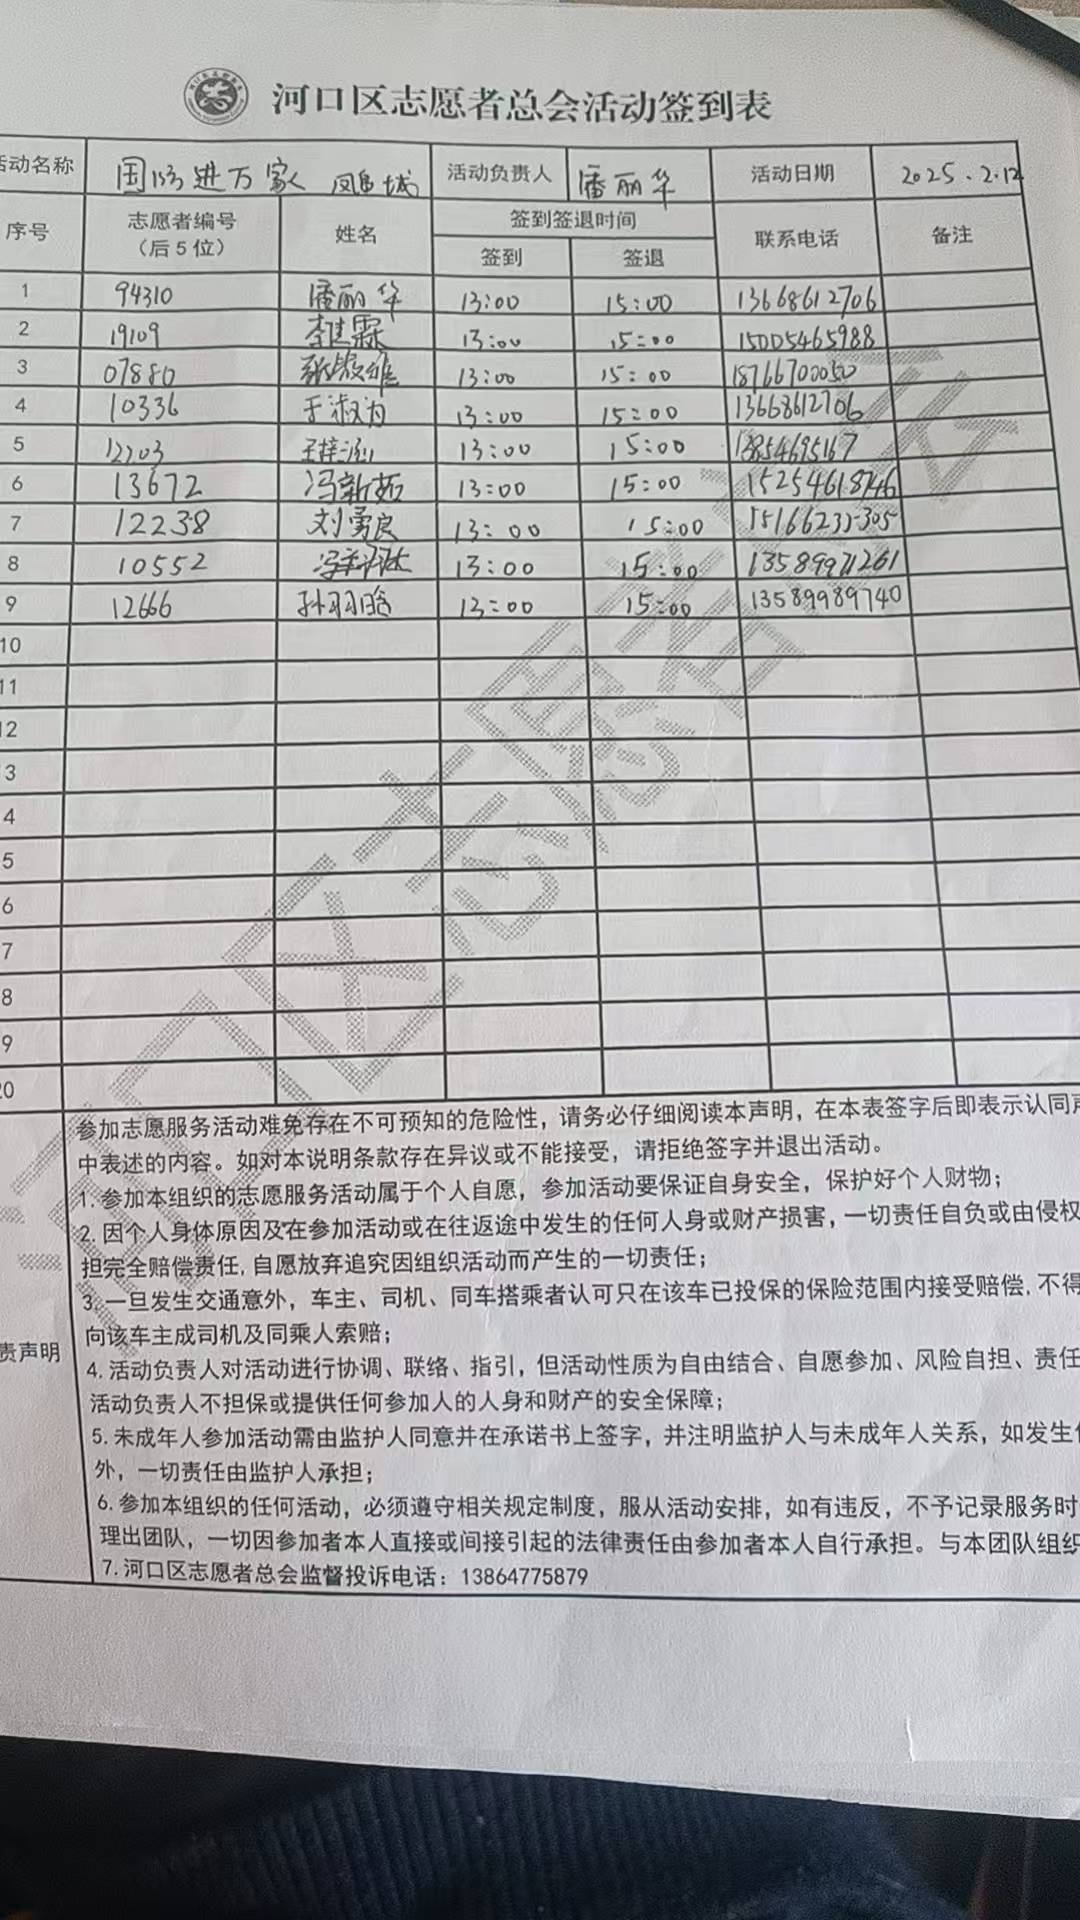 河口区志愿者总会活动签到表
活动名称 国防进万家 凤凰城 活动负责人 潘丽华 活动日期 2025.2.12
序号 志愿者编号（后5位） 姓名 签到签退时间 签到 签退 联系电话 备注
1 94310 潘丽华 13:00 15:00 13668612706
2 19109 李建霖 13:00 15:00 15005465988
3 07880 13:00 15:00 18766700050
4 10336 于淑为 13:00 15:00 13668612706
5 12203 王梓涵 13:00 15:00 13854695167
6 13672 冯新茹 13:00 15:00 15254618746
7 12238 刘勇良 13:00 15:00
8 10552 13:00 15:00 13589971261
9 12666 孙羽晗 13:00 15:00 13589989740
10
11
12
3
4
5
6
7
8
9
20
责声明
参加志愿服务活动难免存在不可预知的危险性，请务必仔细阅读本声明，在本表签字后即表示认同声
中表述的内容。如对本说明条款存在异议或不能接受，请拒绝签字并退出活动。
1. 参加本组织的志愿服务活动属于个人自愿，参加活动要保证自身安全，保护好个人财物；
2. 因个人身体原因及在参加活动或在往返途中发生的任何人身或财产损害，一切责任自负或由侵权
担完全赔偿责任,自愿放弃追究因组织活动而产生的一切责任；
3. 一旦发生交通意外，车主、司机、同车搭乘者认可只在该车已投保的保险范围内接受赔偿,不得
向该车主成司机及同乘人索赔；
4. 活动负责人对活动进行协调、联络、指引，但活动性质为自由结合、自愿参加、风险自担、责任
活动负责人不担保或提供任何参加人的人身和财产的安全保障；
5. 未成年人参加活动需由监护人同意并在承诺书上签字，并注明监护人与未成年人关系，如发生
外，一切责任由监护人承担；
6. 参加本组织的任何活动，必须遵守相关规定制度，服从活动安排，如有违反，不予记录服务时
理出团队，一切因参加者本人直接或间接引起的法律责任由参加者本人自行承担。与本团队组织
7. 河口区志愿者总会监督投诉电话：13864775879